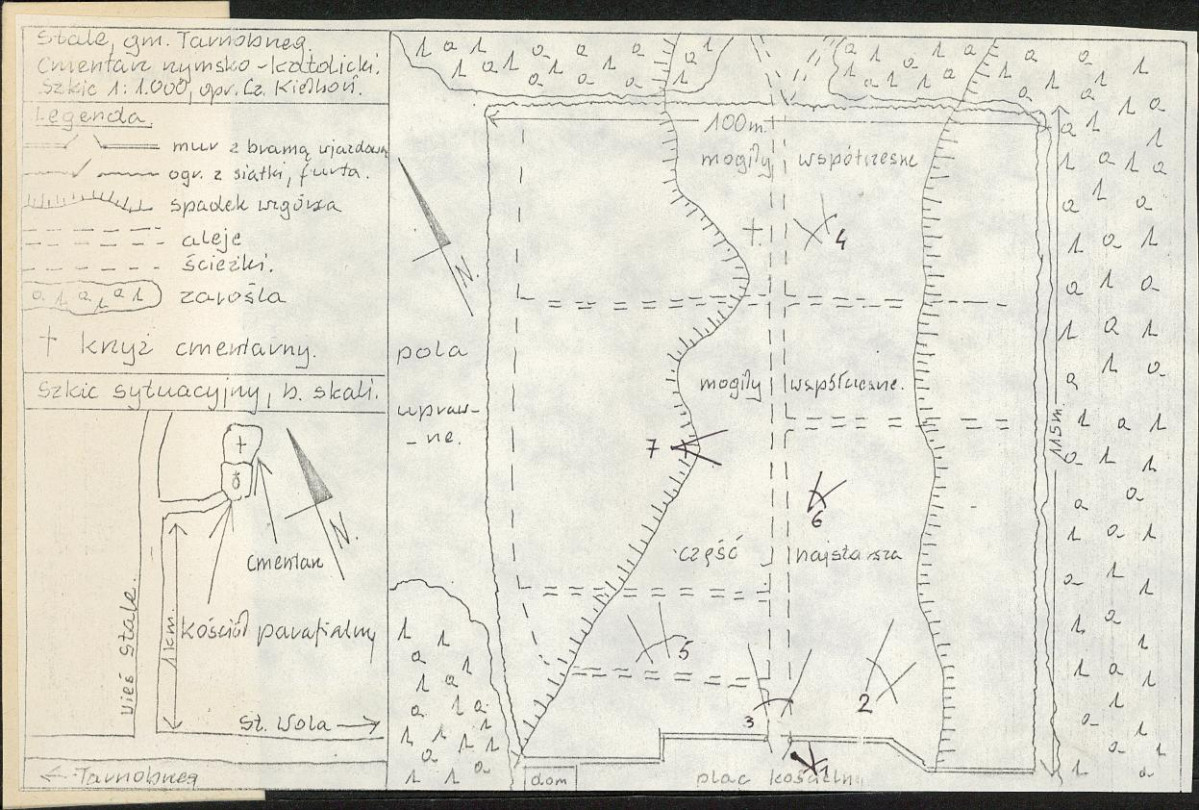 Stale, gm. Tarnobrzeg.
Cmentarz rzymsko-katolicki.
Szkic 1:1.000, opr. Cz. Kiełboń.
Legenda.
mur z bramą wjazdową
ogr. z siatki, furta.
spadek wzgórza
aleje
ścieżki.
zarośla
krzyż cmentarny.
Szkic sytuacyjny, b. skali.
N.
cmentarz
kościół parafialny
1 km.
Wieś Stale.
St. Wola →
← Tarnobrzeg
100 m.
mogiły współczesne
4
N.
pola
upraw-
-ne.
mogiły współczesne.
115 m.
7
6
część najstarsza
5
3
2
1
dom
plac kościelny